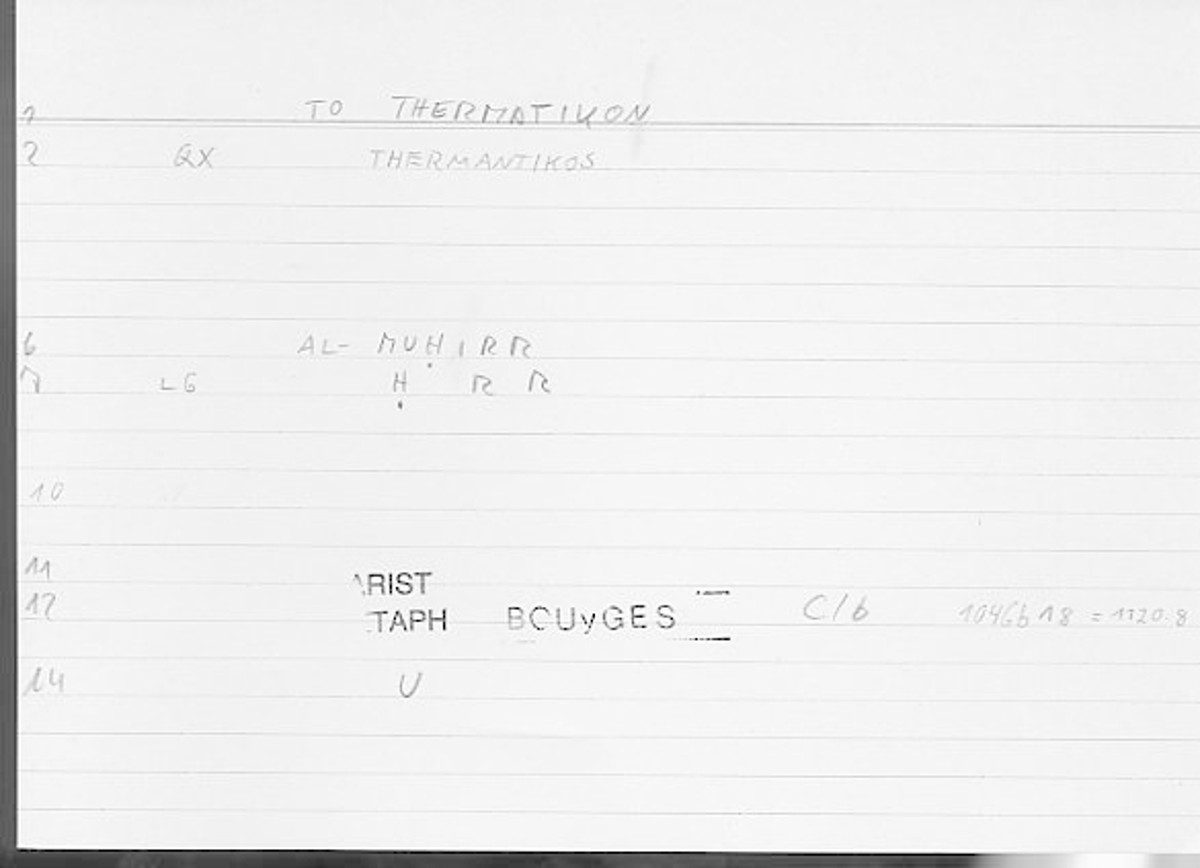 1 TO THERMATIKON
2 QX THERMANTIKOS
6 AL- MUḤIRR
7 LG Ḥ R R
10
11 ARIST
12 TAPH BOUyGES C/b 1046b18 = 1120.8
14 U